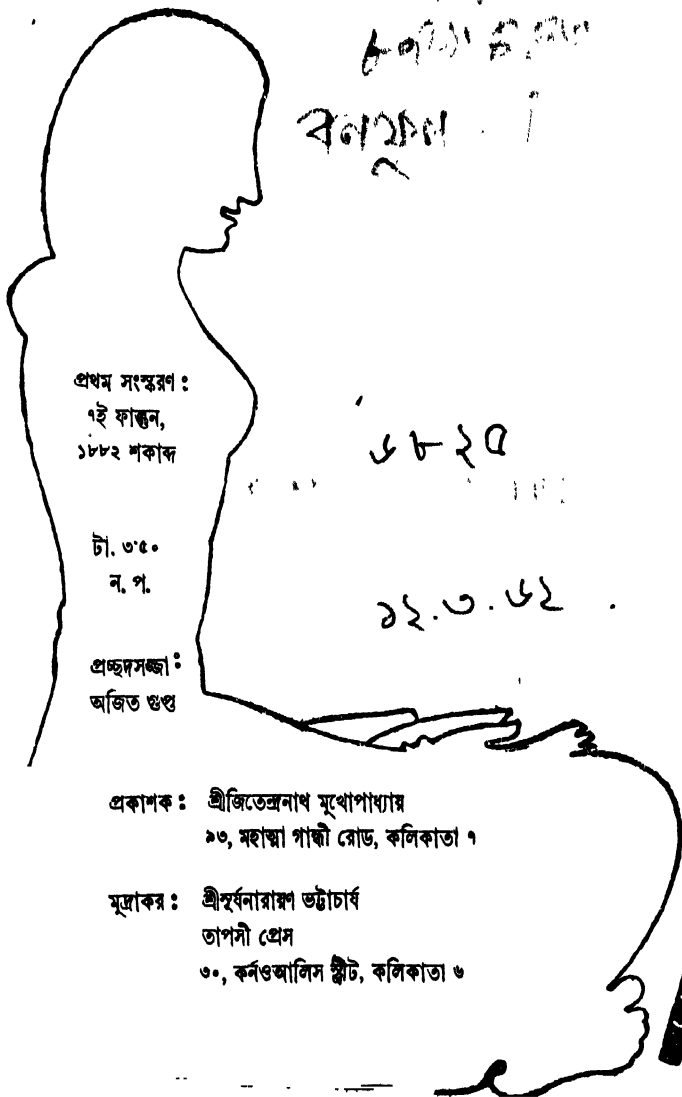 বনফুল
প্রথম সংস্করণ :
৭ই ফাল্গুন,
১৮৮২ শকাব্দ
৬৮২৫
টা. ৩'৫০
ন. প.
১২.৩.৬২
প্রচ্ছদসজ্জা :
অজিত গুপ্ত
প্রকাশক : শ্রীজিতেন্দ্রনাথ মুখোপাধ্যায়
৯৩, মহাত্মা গান্ধী রোড, কলিকাতা ৭
মুদ্রাকর : শ্রীসূর্যনারায়ণ ভট্টাচার্য
তাপসী প্রেস
৩০, কর্নওআলিস স্ট্রীট, কলিকাতা ৬